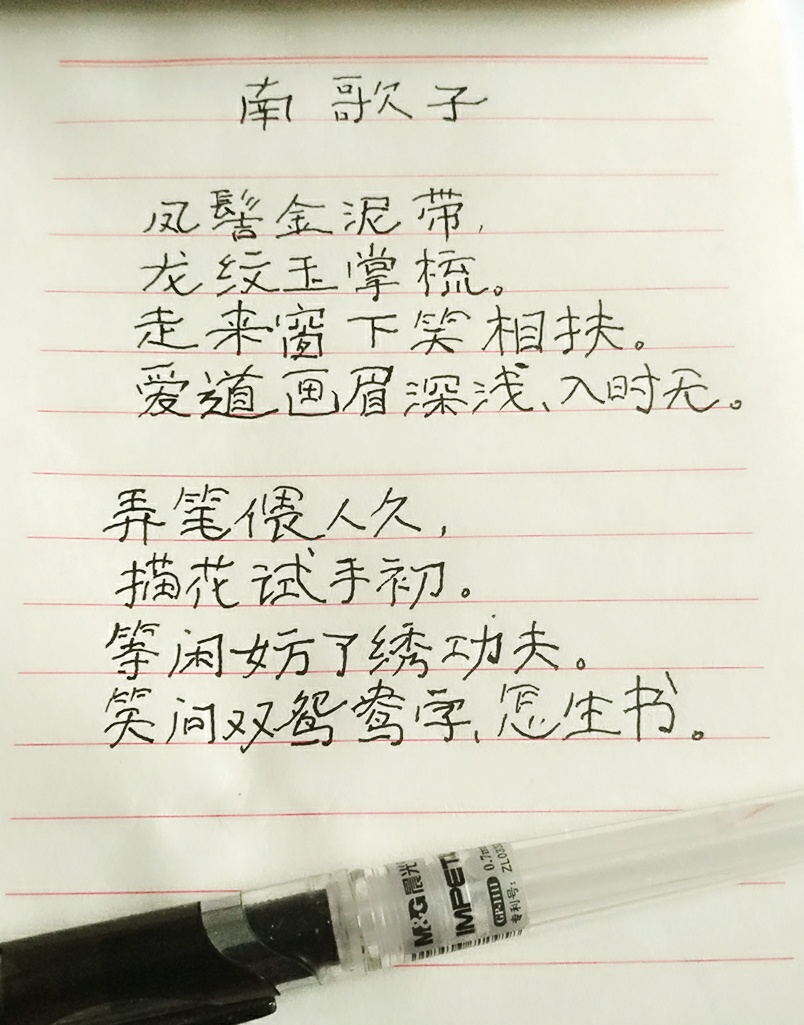 南歌子
凤髻金泥带,
龙纹玉掌梳。
走来窗下笑相扶。
爱道画眉深浅、入时无。
弄笔偎人久,
描花试手初。
等闲妨了绣功夫。
笑问双鸳鸯字、怎生书。
M&G 晨光
IMPET
GP-1111 0.7m
专利号: ZL033